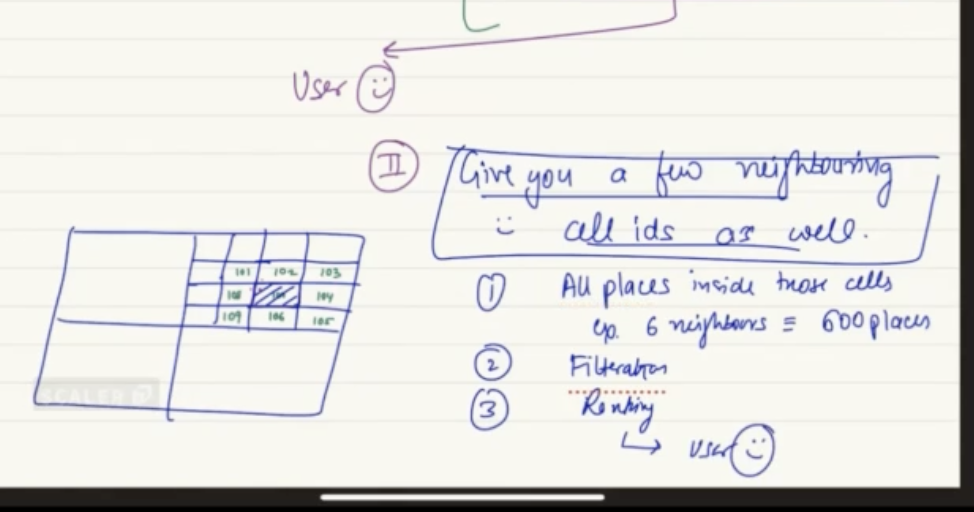 User
II
Give you a few neighbouring
cell ids as well.
101 102 103
108 104
109 106 105
1 All places inside those cells
6 neighbours ≡ 600 places
2 Filteration
3 Ranking
User
SCALER